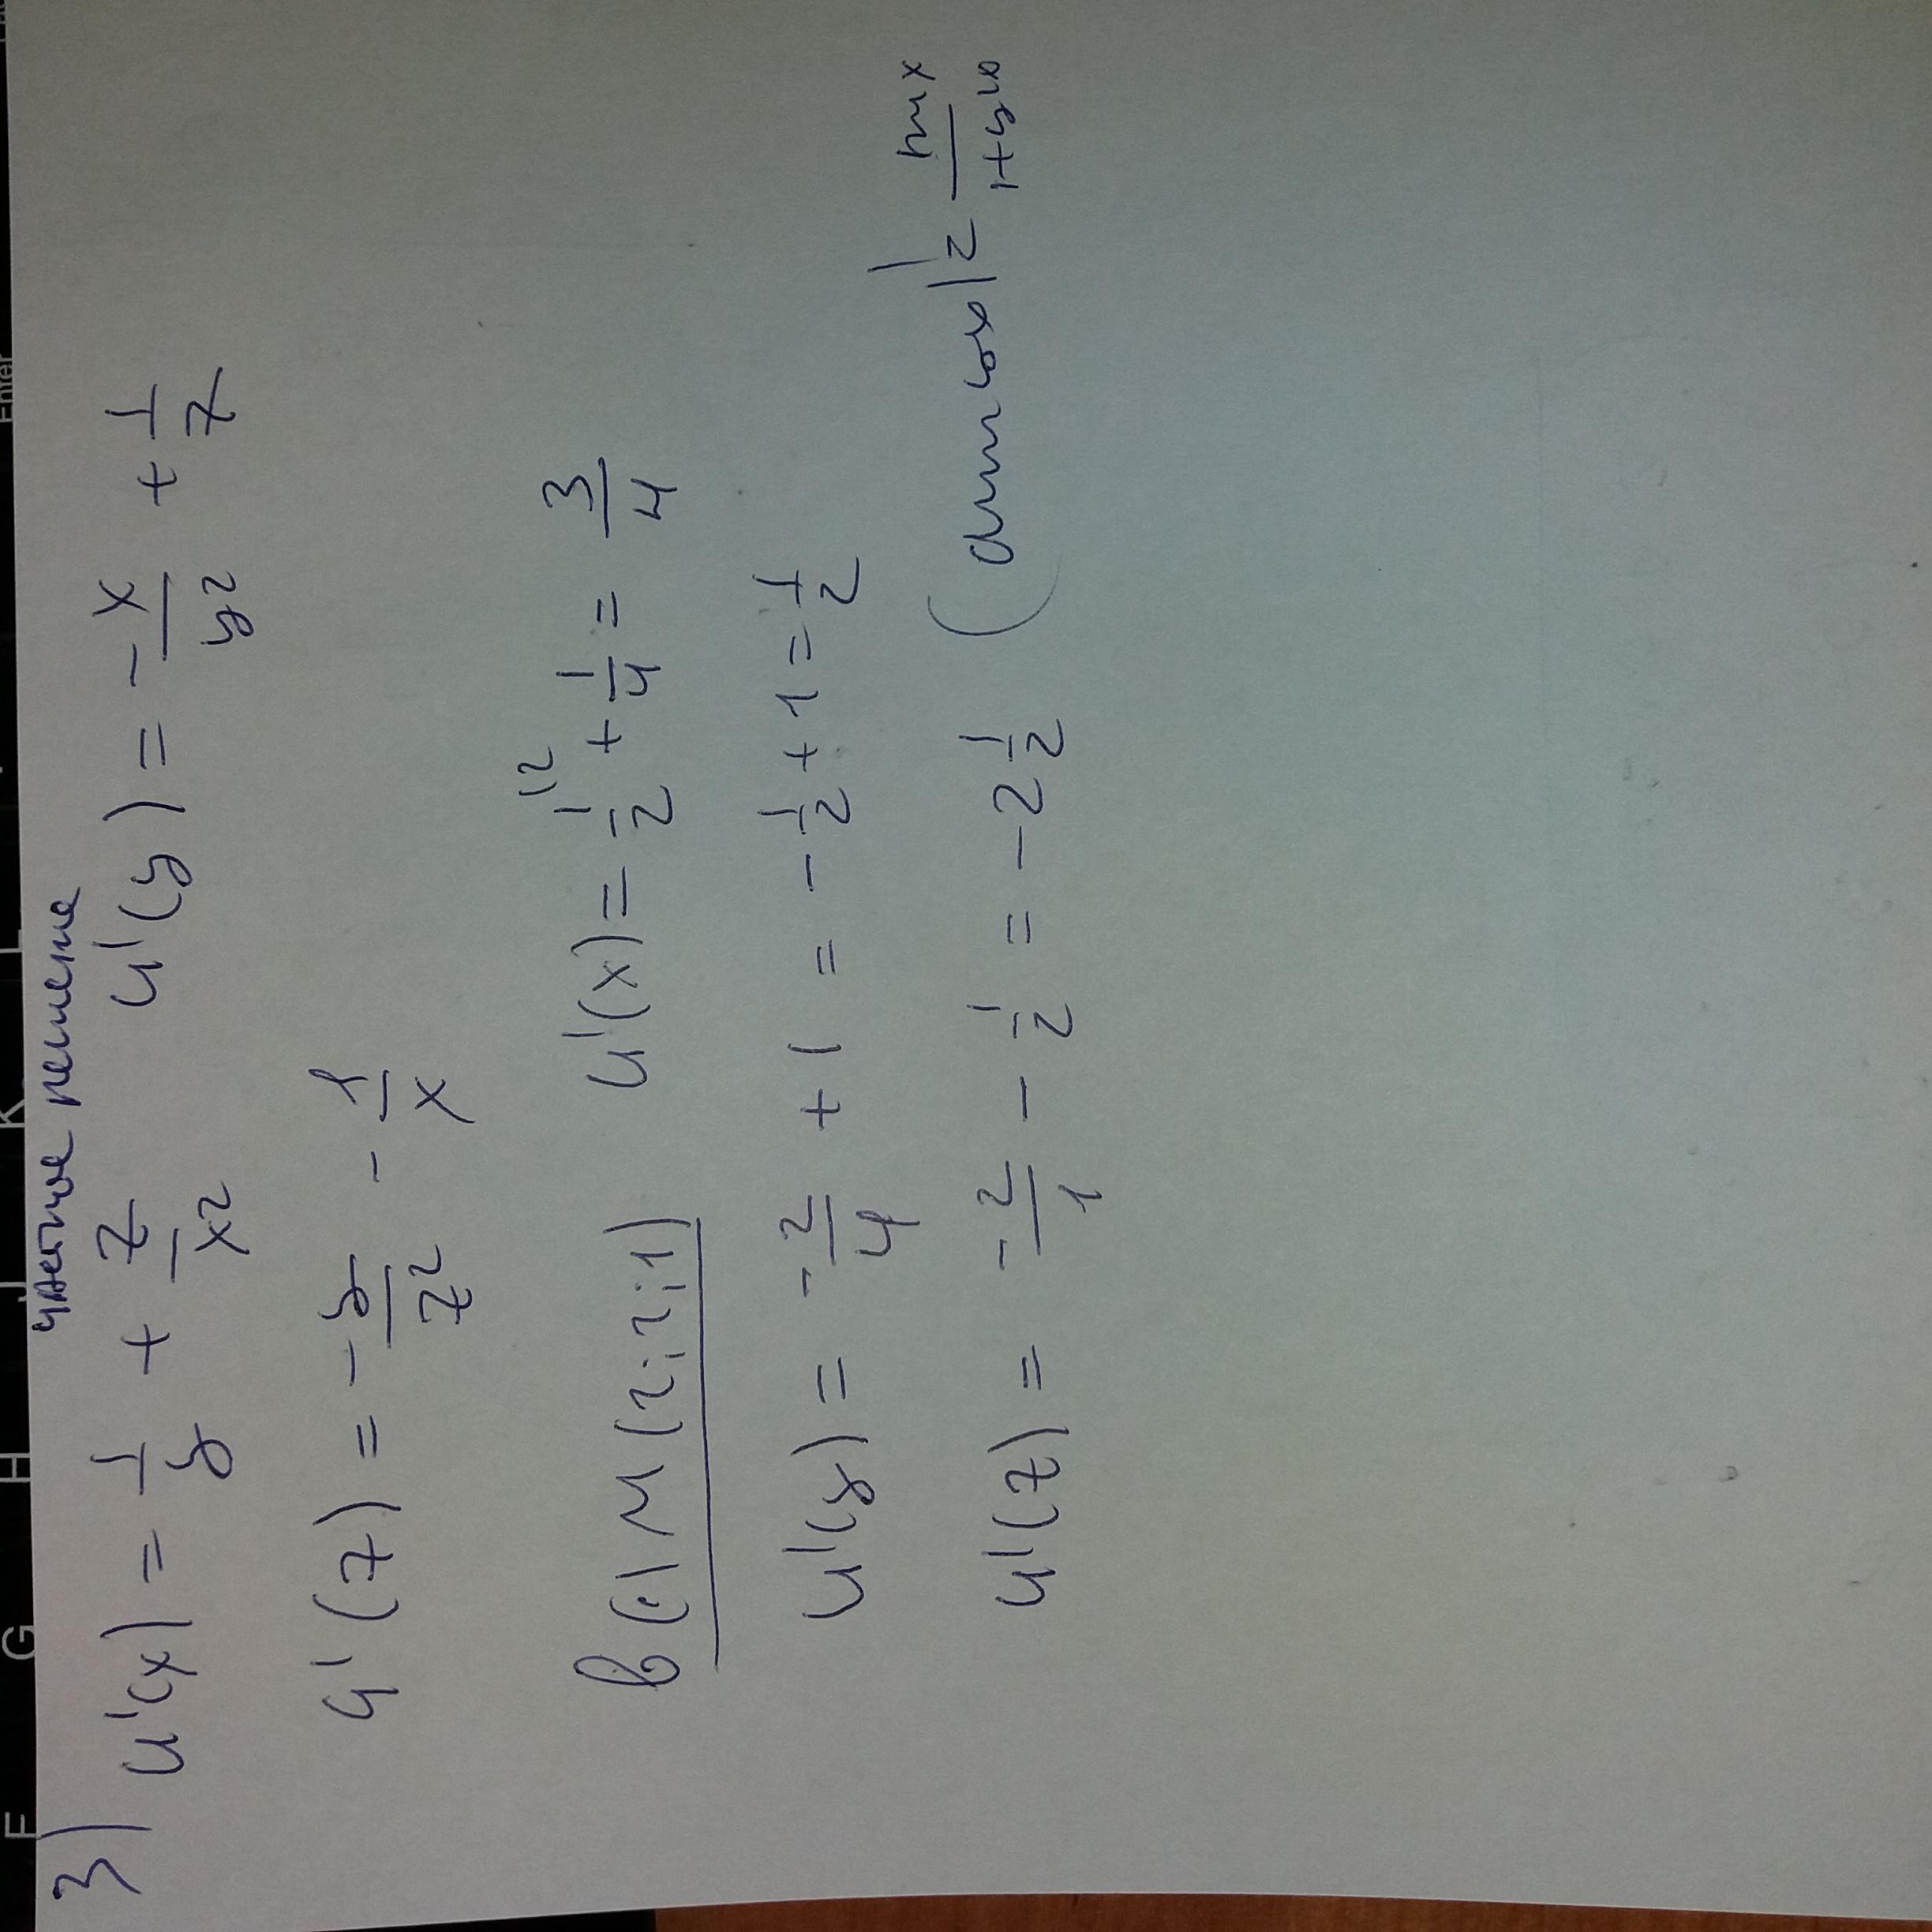 частное решение
3) u'(x) = 1/y + z/x² u'(y) = -x/y² + 1/z
u'(z) = -y/z² - 1/x
В (·) M (2;2;1) u'(x) = 1/2 \2 + 1/4 = 3/4
u'(y) = -2/4 + 1 = -1/2 + 1 = 1/2
u'(z) = -2/1 - 1/2 = -2 1/2
F G H J K L Enter